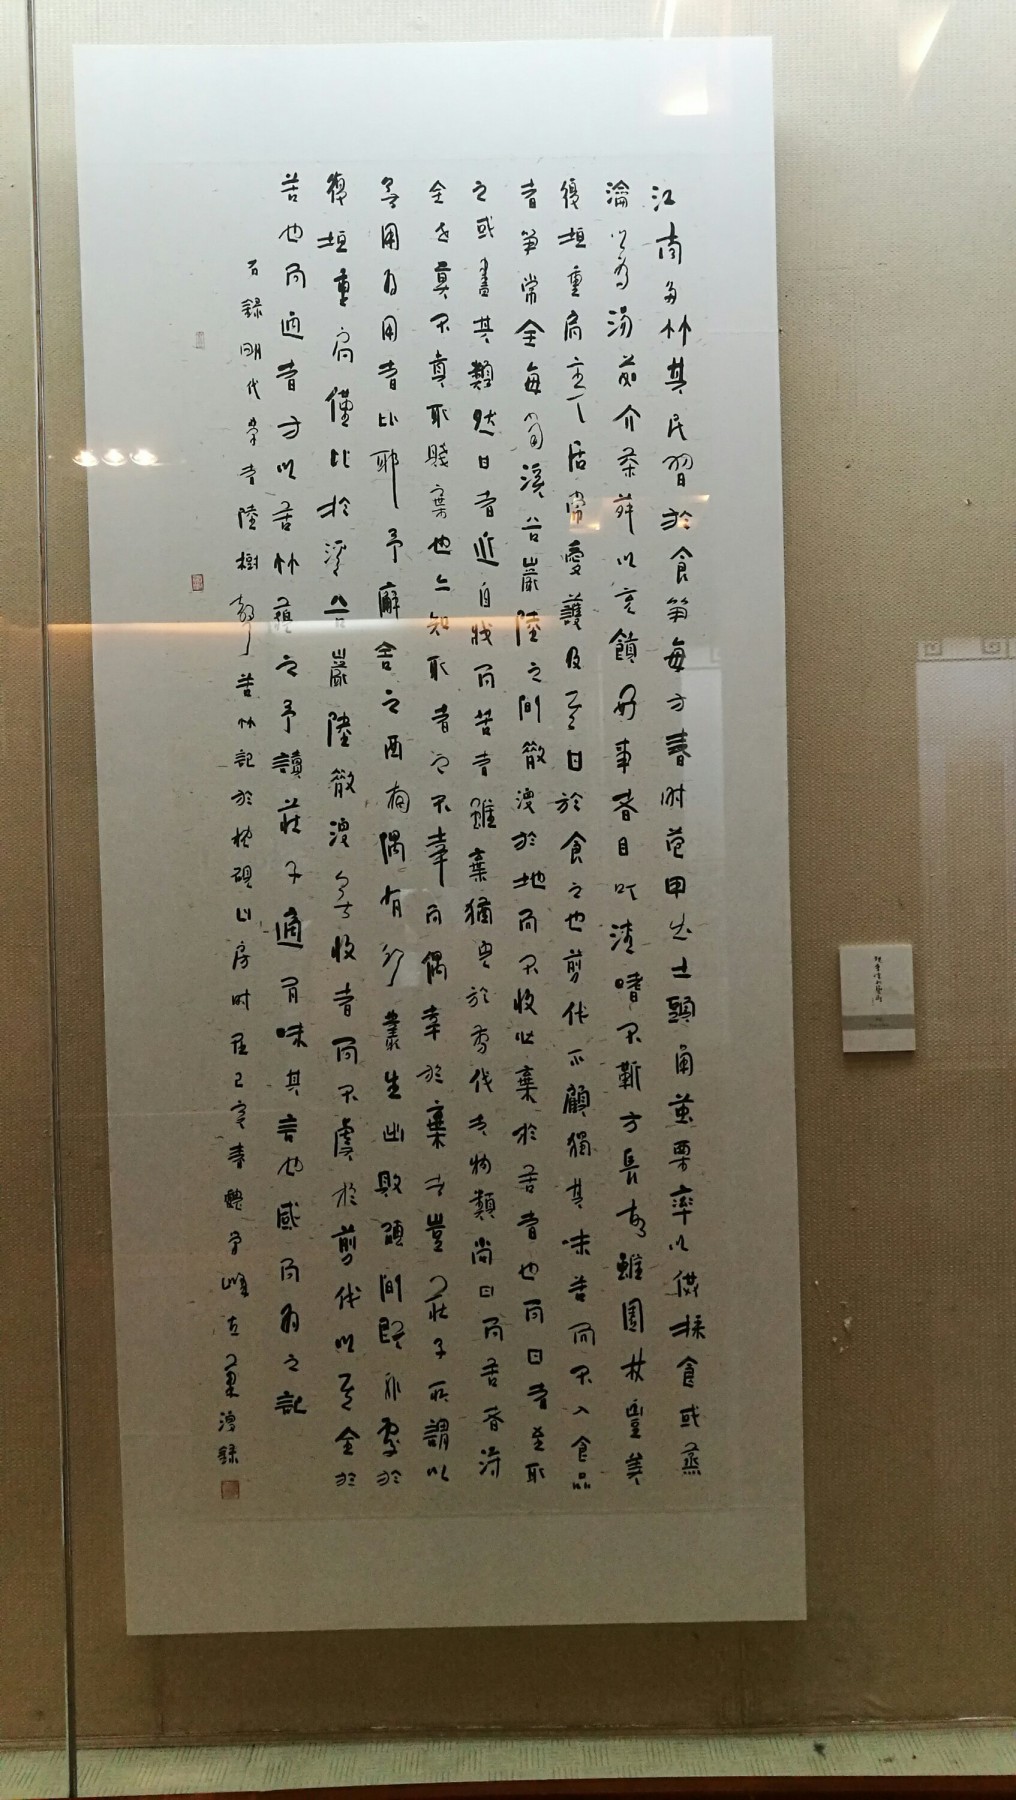 江南多竹其民習於食筍每方春时苞甲出土頭角茧栗率以供採食或蒸
瀹以为湯茹介茶荈以充饋好事者目以清嗜不靳方長故雖園林豐美
復垣重扃主人居常愛護及至甘於食之也剪伐不顧獨其味苦而不入食品
者筍常全每當溪谷巖陸之間散漫於地而不收必棄於苦者也而甘者至取
之或盡其類然甘者近自戕而苦者雖棄猶免於剪伐夫物類尚甘而苦者得
全世莫不貴取賤棄也亦知取者之不幸而偶幸於棄者豈莊子所謂以
無用为用者比耶予廨舍之西南隅有竹叢生出敗間既非處於
復垣重扃僅比於溪谷巖陸散漫無收者而不虞於剪伐以至全於
苦也而適者方以苦竹之予讀莊子適有味其言也感而为之記
右録明代學者陸樹聲苦竹記於硯山房时在己亥春漫録